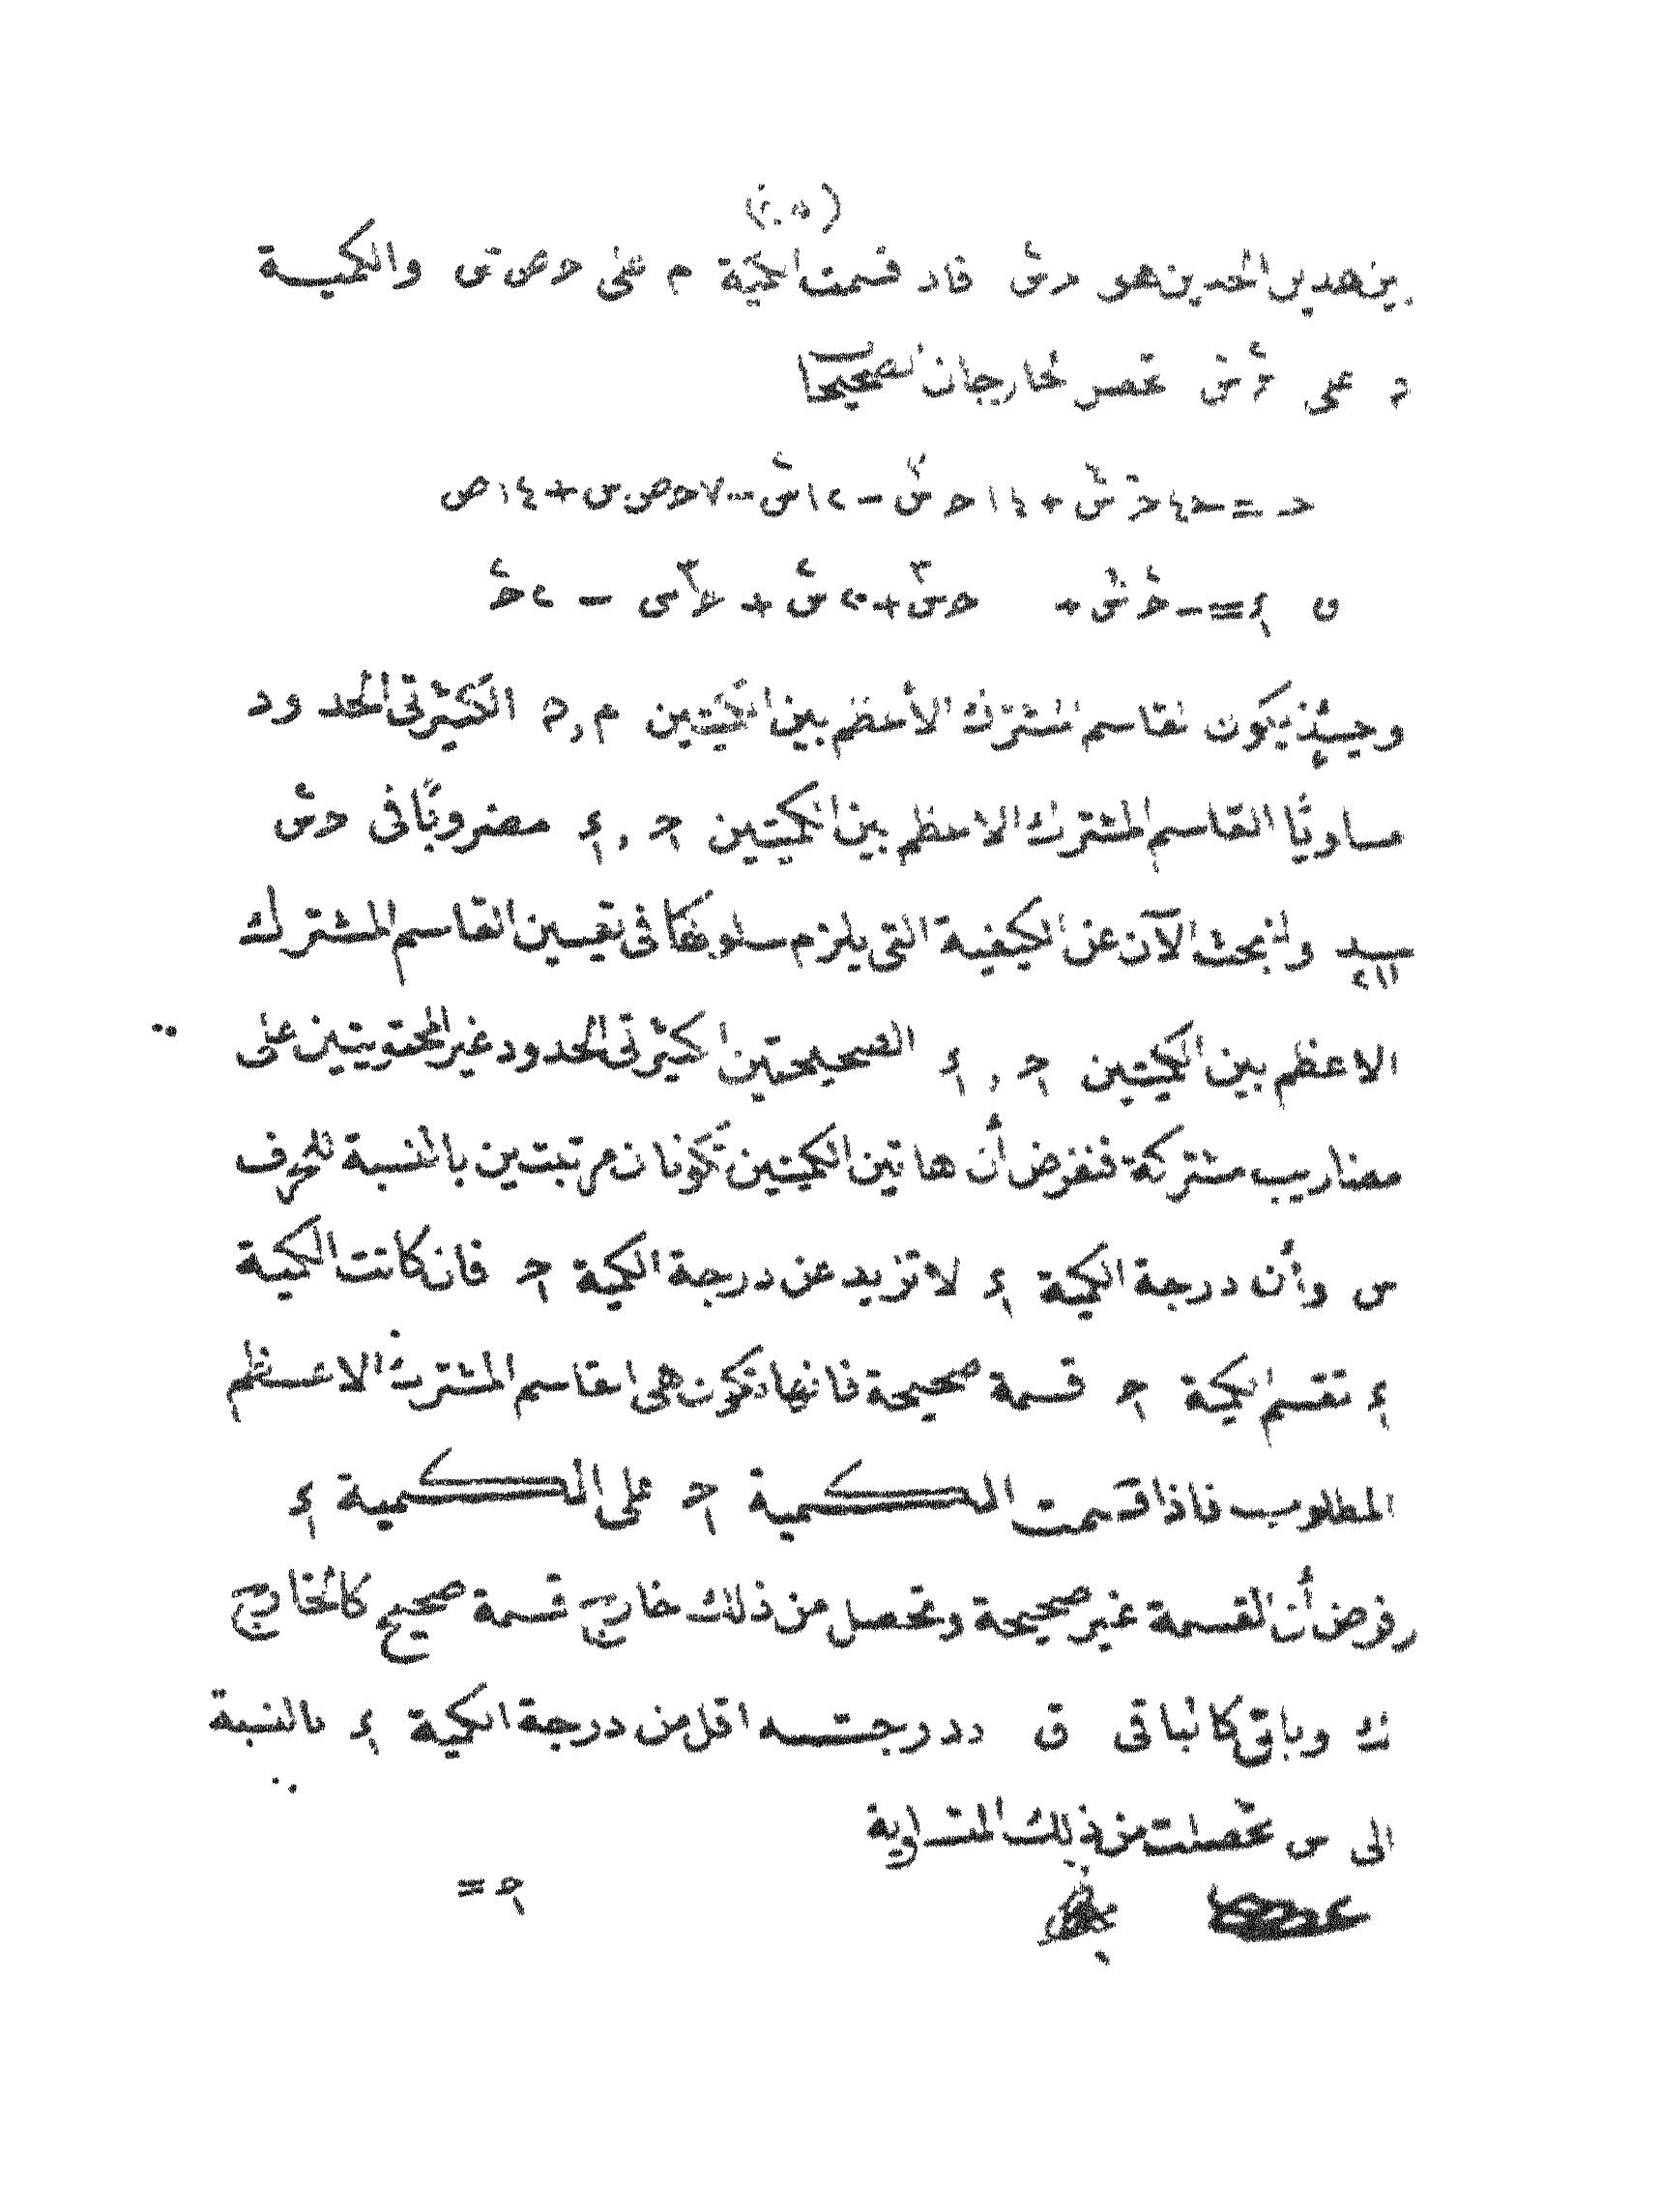 (٢٠٥)
بين هدين الحدين هو حسً فاذ قسمت الكمية م على حص س والكمية
د على حً س تحصر الخارجان الصحيحا
ح = -٤٢حً سً + ١٤ ح سً - ١٢سً - ٧حص س + ١٤ص
و ء = - حً سً + حس٣ + ٢٠سً + ح٣س - ٢حً
وحينئذ يكون القاسم المشترك الأعظم بين الكميتين م , د الكثيرتى الحدود
مساويًا القاسم المشترك الاعظم بين الكميتين ح , ء مضروبًا فى حسً
بند ولنبحث الآن عن الكيفية التى يلزم سلوكها فى تعيين القاسم المشترك
٢١١
الاعظم بين الكميتين ح , ء الصحيحتين الكثيرتى الحدود غير المحتويتين على
مضاريب مشتركة فنفرض أن هاتين الكميتين تكونان مرتبتين بالنسبة للحرف
س وأن درجة الكمية ء لا تزيد عن درجة الكمية ح فان كانت الكمية
ء تقسم الكمية ح قسمة صحيحة فانها تكون هى القاسم المشترك الاعظم
المطلوب فاذا قسمت الكمية ح على الكمية ء
وفرض أن القسمة غير صحيحة وتحصل من ذلك خارج قسمة صحيح كالخارج
ك وباقى كالباقى ق ددرجته اقل من درجة الكمية ء بالنسبة
الى س تحصلت من ذلك المتساوية
ح =